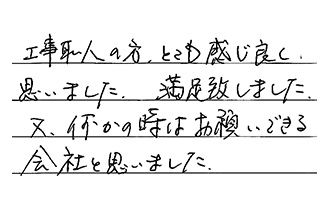 工事職人の方、とても感じ良く、
思いました。満足致しました。
又、何かの時はお願いできる
会社と思いました。